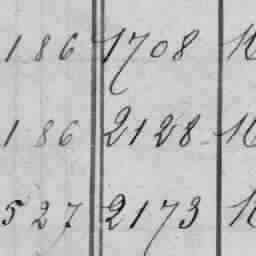 1 8 6 1708
1 8 6 2128
5 2 7 2173